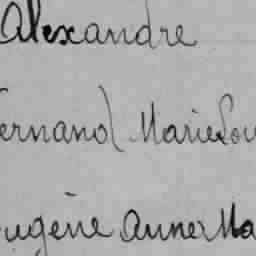 Alexandre
ernand Marie Lou
ugène Anne Ma